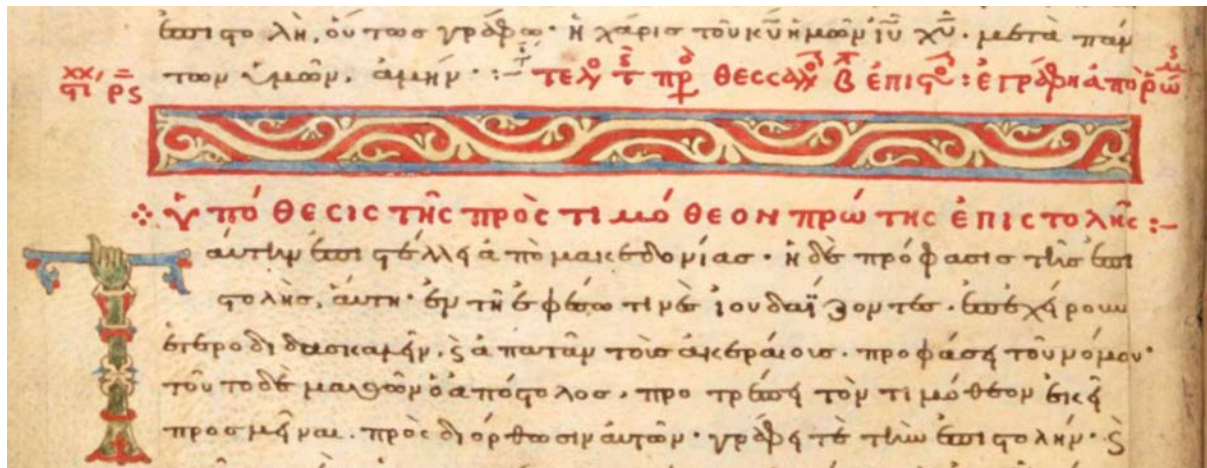 ἐπιστολῆ, οὕτως γράφω· ἡ χάρις τοῦ κυ ἡμῶν ιυ χυ· μετὰ πάν
των ὑμῶν, ἀμήν· :- τελ τ πρ θεσσαλ β ἐπιστ : ἐγράφη ἀπὸ ρώ
στι ρς
ὑπόθεσις τῆς πρὸς τιμόθεον πρώτης ἐπιστολῆς :-
Ταύτην ἐπιστέλλει ἀπὸ μακεδονίας· ἡ δὲ πρόφασις τῆς ἐπι
στολῆς, αὕτη· ἐν τῆ ἐφέσω τινὲς ἰουδαΐζοντες· ἐπεχείρουν
ἑτεροδιδασκαλεῖν, ϗ ἀπατᾶν τοὺς ἀκεραίους· προφάσει τοῦ νόμου·
τοῦτο δὲ μαθὼν ὁ ἀπόστολος, προτρέπει τὸν τιμόθεον ἐκεῖ
προσμεῖναι· πρὸς διόρθωσιν αὐτῶν· γράφει τὲ τὴν ἐπιστολήν· ϗ